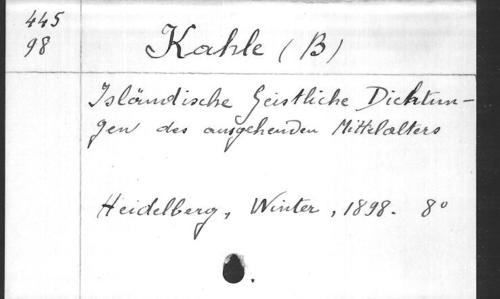 445
98
Kahle (B)
Isländische Geistliche Dichtun-
gen des ausgehenden Mittelalters
Heidelberg, Winter, 1898. 8º